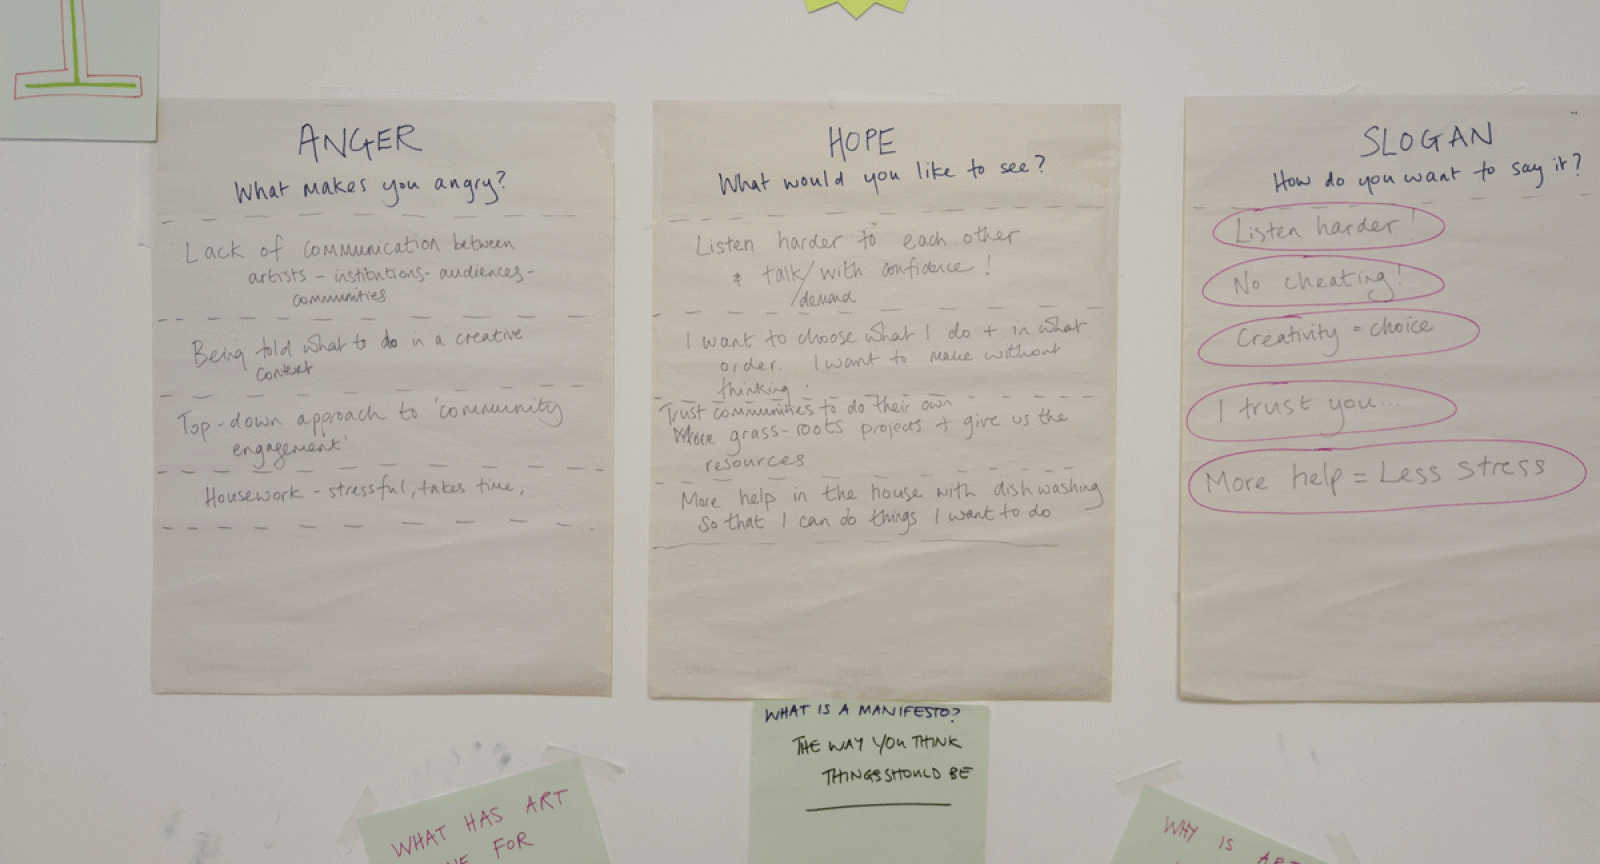 ANGER
What makes you angry?
Lack of communication between
artists - institutions - audiences -
communities
Being told what to do in a creative
context
Top-down approach to 'community
engagement'
Housework - stressful, takes time.
HOPE
What would you like to see?
Listen harder to each other
& talk/with confidence!
/demand
I want to choose what I do + in what
order. I want to make without
thinking.
Trust communities to do their own
More grass-roots projects + give us the
resources
More help in the house with dishwashing
so that I can do things I want to do
SLOGAN
How do you want to say it?
Listen harder!
No cheating!
Creativity = choice
I trust you...
More help = Less stress
WHAT IS A MANIFESTO?
THE WAY YOU THINK
THINGS SHOULD BE
WHAT HAS ART
FOR
WHY IS